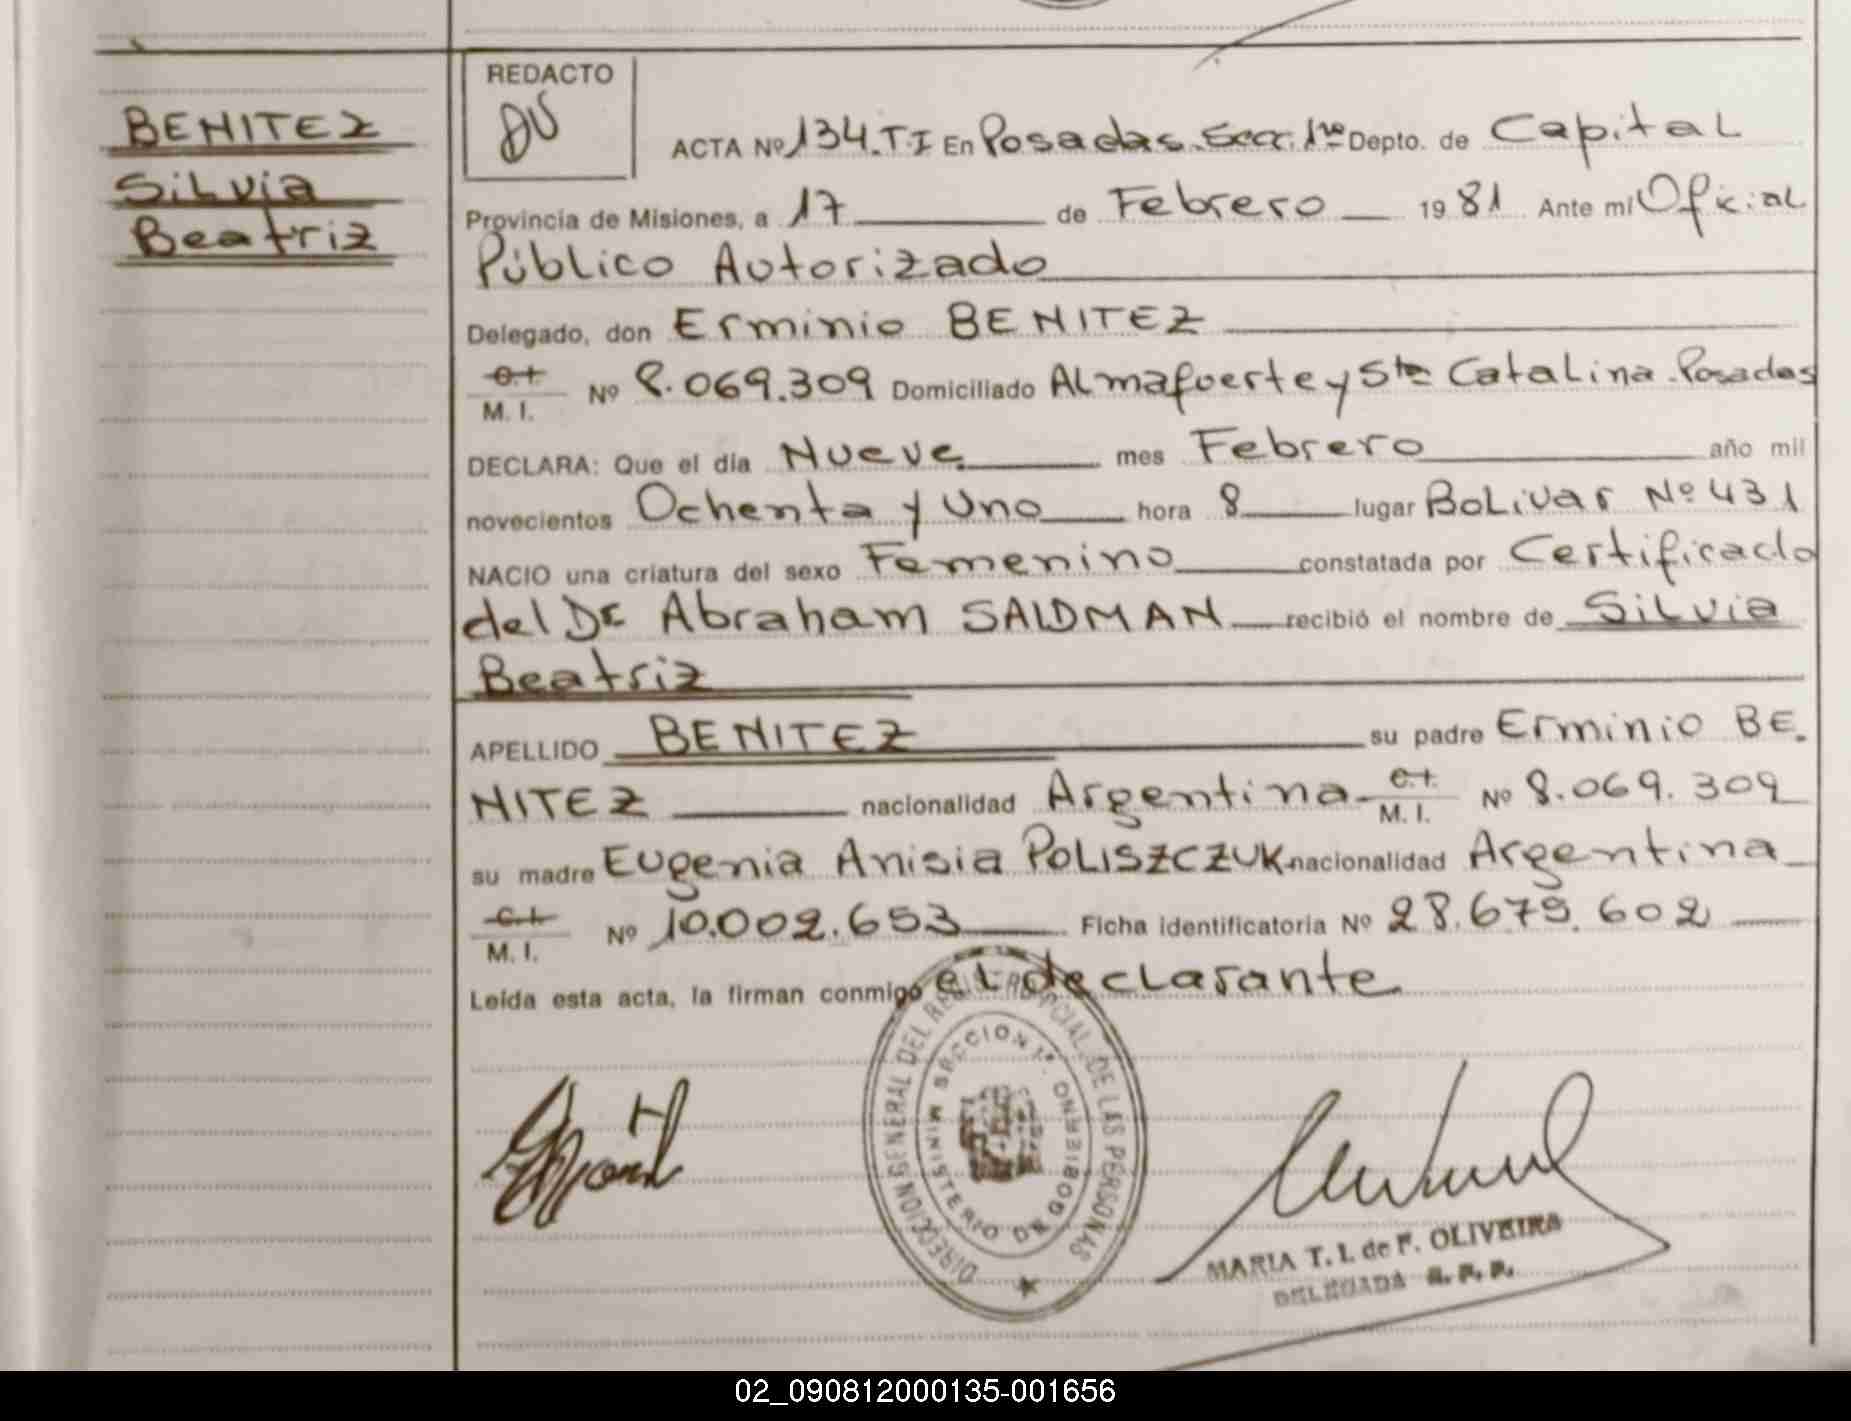 BENITEZ
Silvia
Beatriz
REDACTO
ACTA Nº 134.T.I En Posadas. Secc. 1ra Depto. de Capital
Provincia de Misiones, a 17 de Febrero 1981 Ante mí Oficial
Público Autorizado
Delegado, don Erminio BENITEZ
C.I. / M. I. Nº 8.069.309 Domiciliado Almafuerte y Sta Catalina. Posadas
DECLARA: Que el día Nueve mes Febrero año mil
novecientos Ochenta y Uno hora 8 lugar Bolivar Nº 431
NACIO una criatura del sexo Femenino constatada por Certificado
del Dr Abraham SALDMAN recibió el nombre de Silvia
Beatriz
APELLIDO BENITEZ su padre Erminio BE.
NITEZ nacionalidad Argentina C.I. / M. I. Nº 8.069.309
su madre Eugenia Anisia POLISZCZUK nacionalidad Argentina
C.I. / M. I. Nº 10.002.653 Ficha identificatoria Nº 28.679.602
Leída esta acta, la firman conmigo el declarante
DIRECCION GENERAL DEL DE LAS PERSONAS
MINISTERIO DE GOBIERNO SECCION 1ª.
MARIA T. I. de F. OLIVEIRA
DELEGADA R. P. P.
02_090812000135-001656